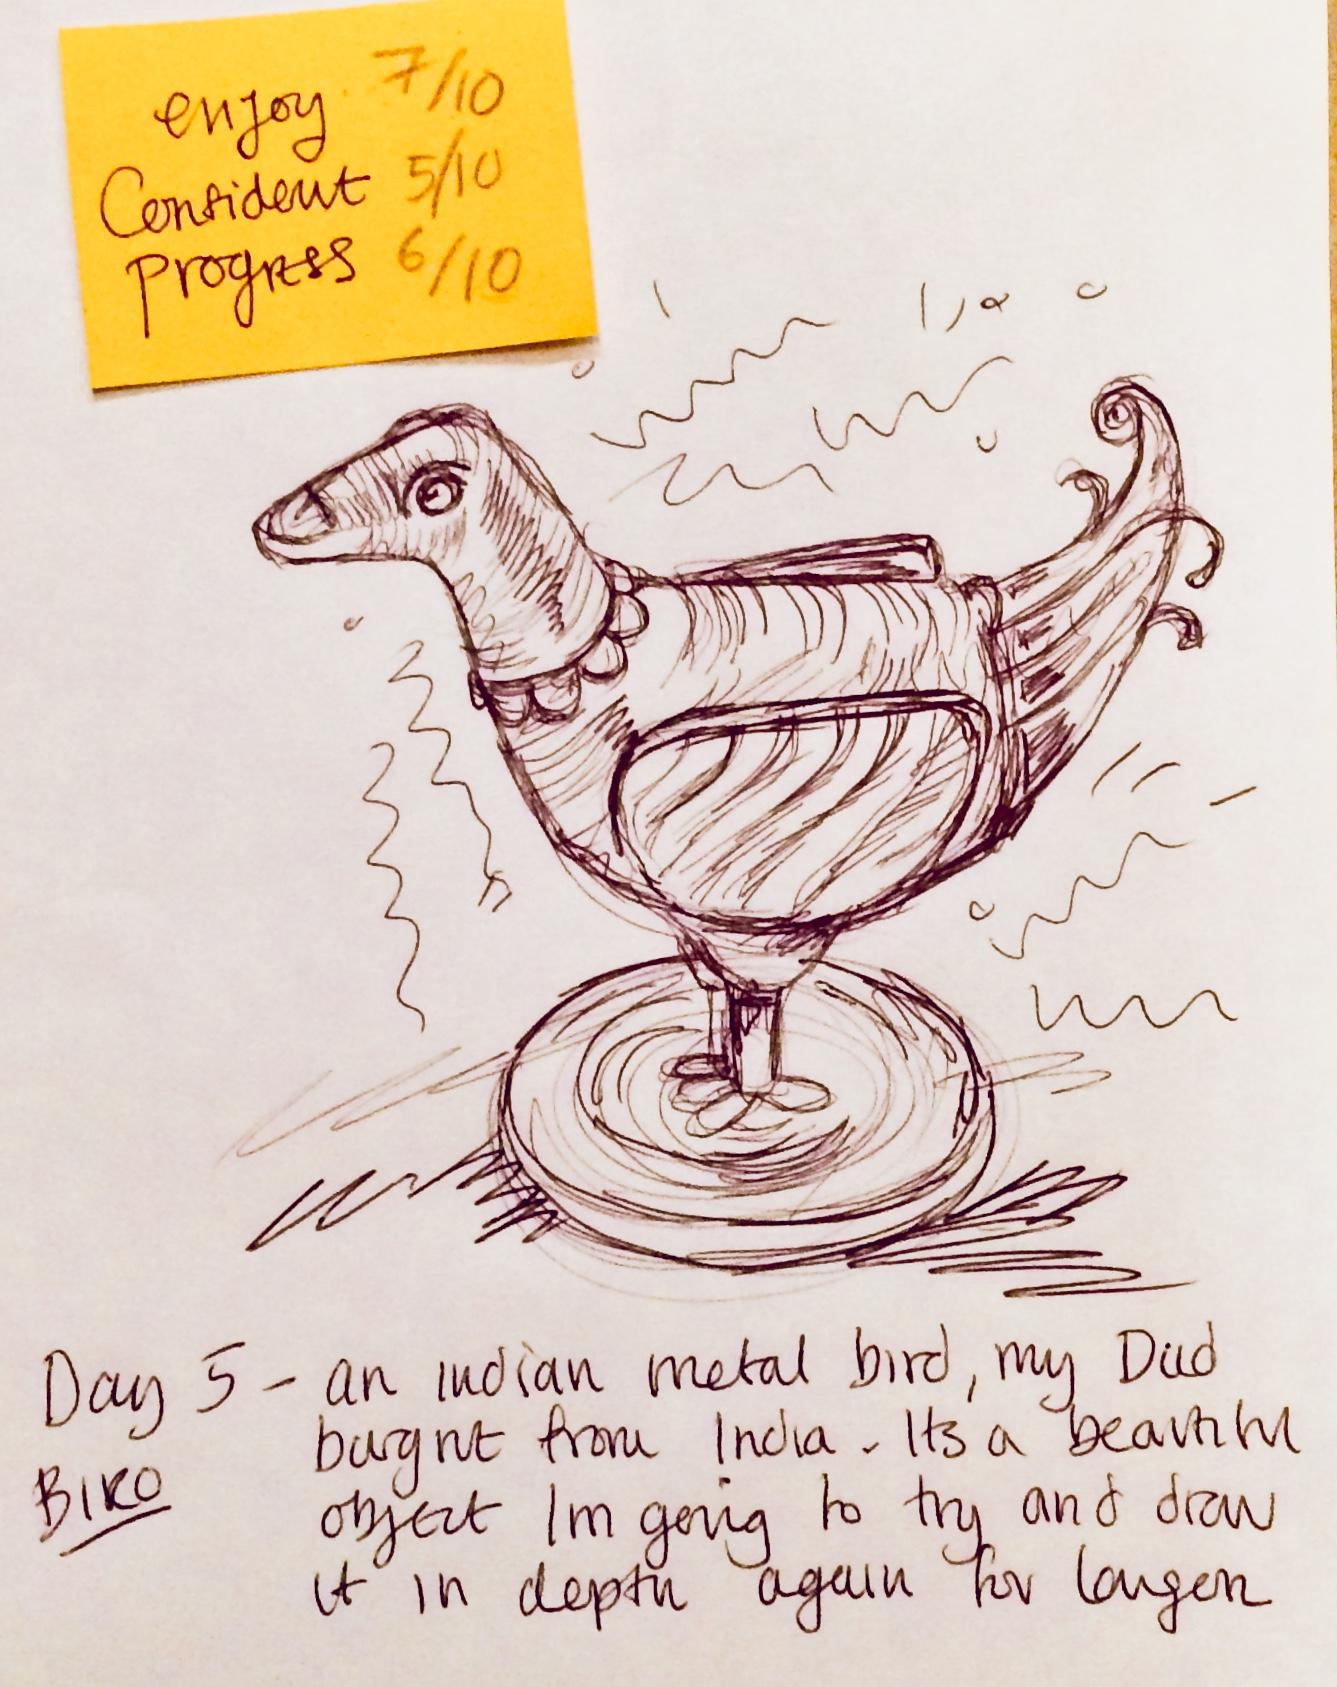 enjoy 7/10
Confident 5/10
progress 6/10
Day 5 - an indian metal bird, my Dad
BIRD burgnt from India. Its a beautiful
object Im going to try and draw
it in depth again for longer